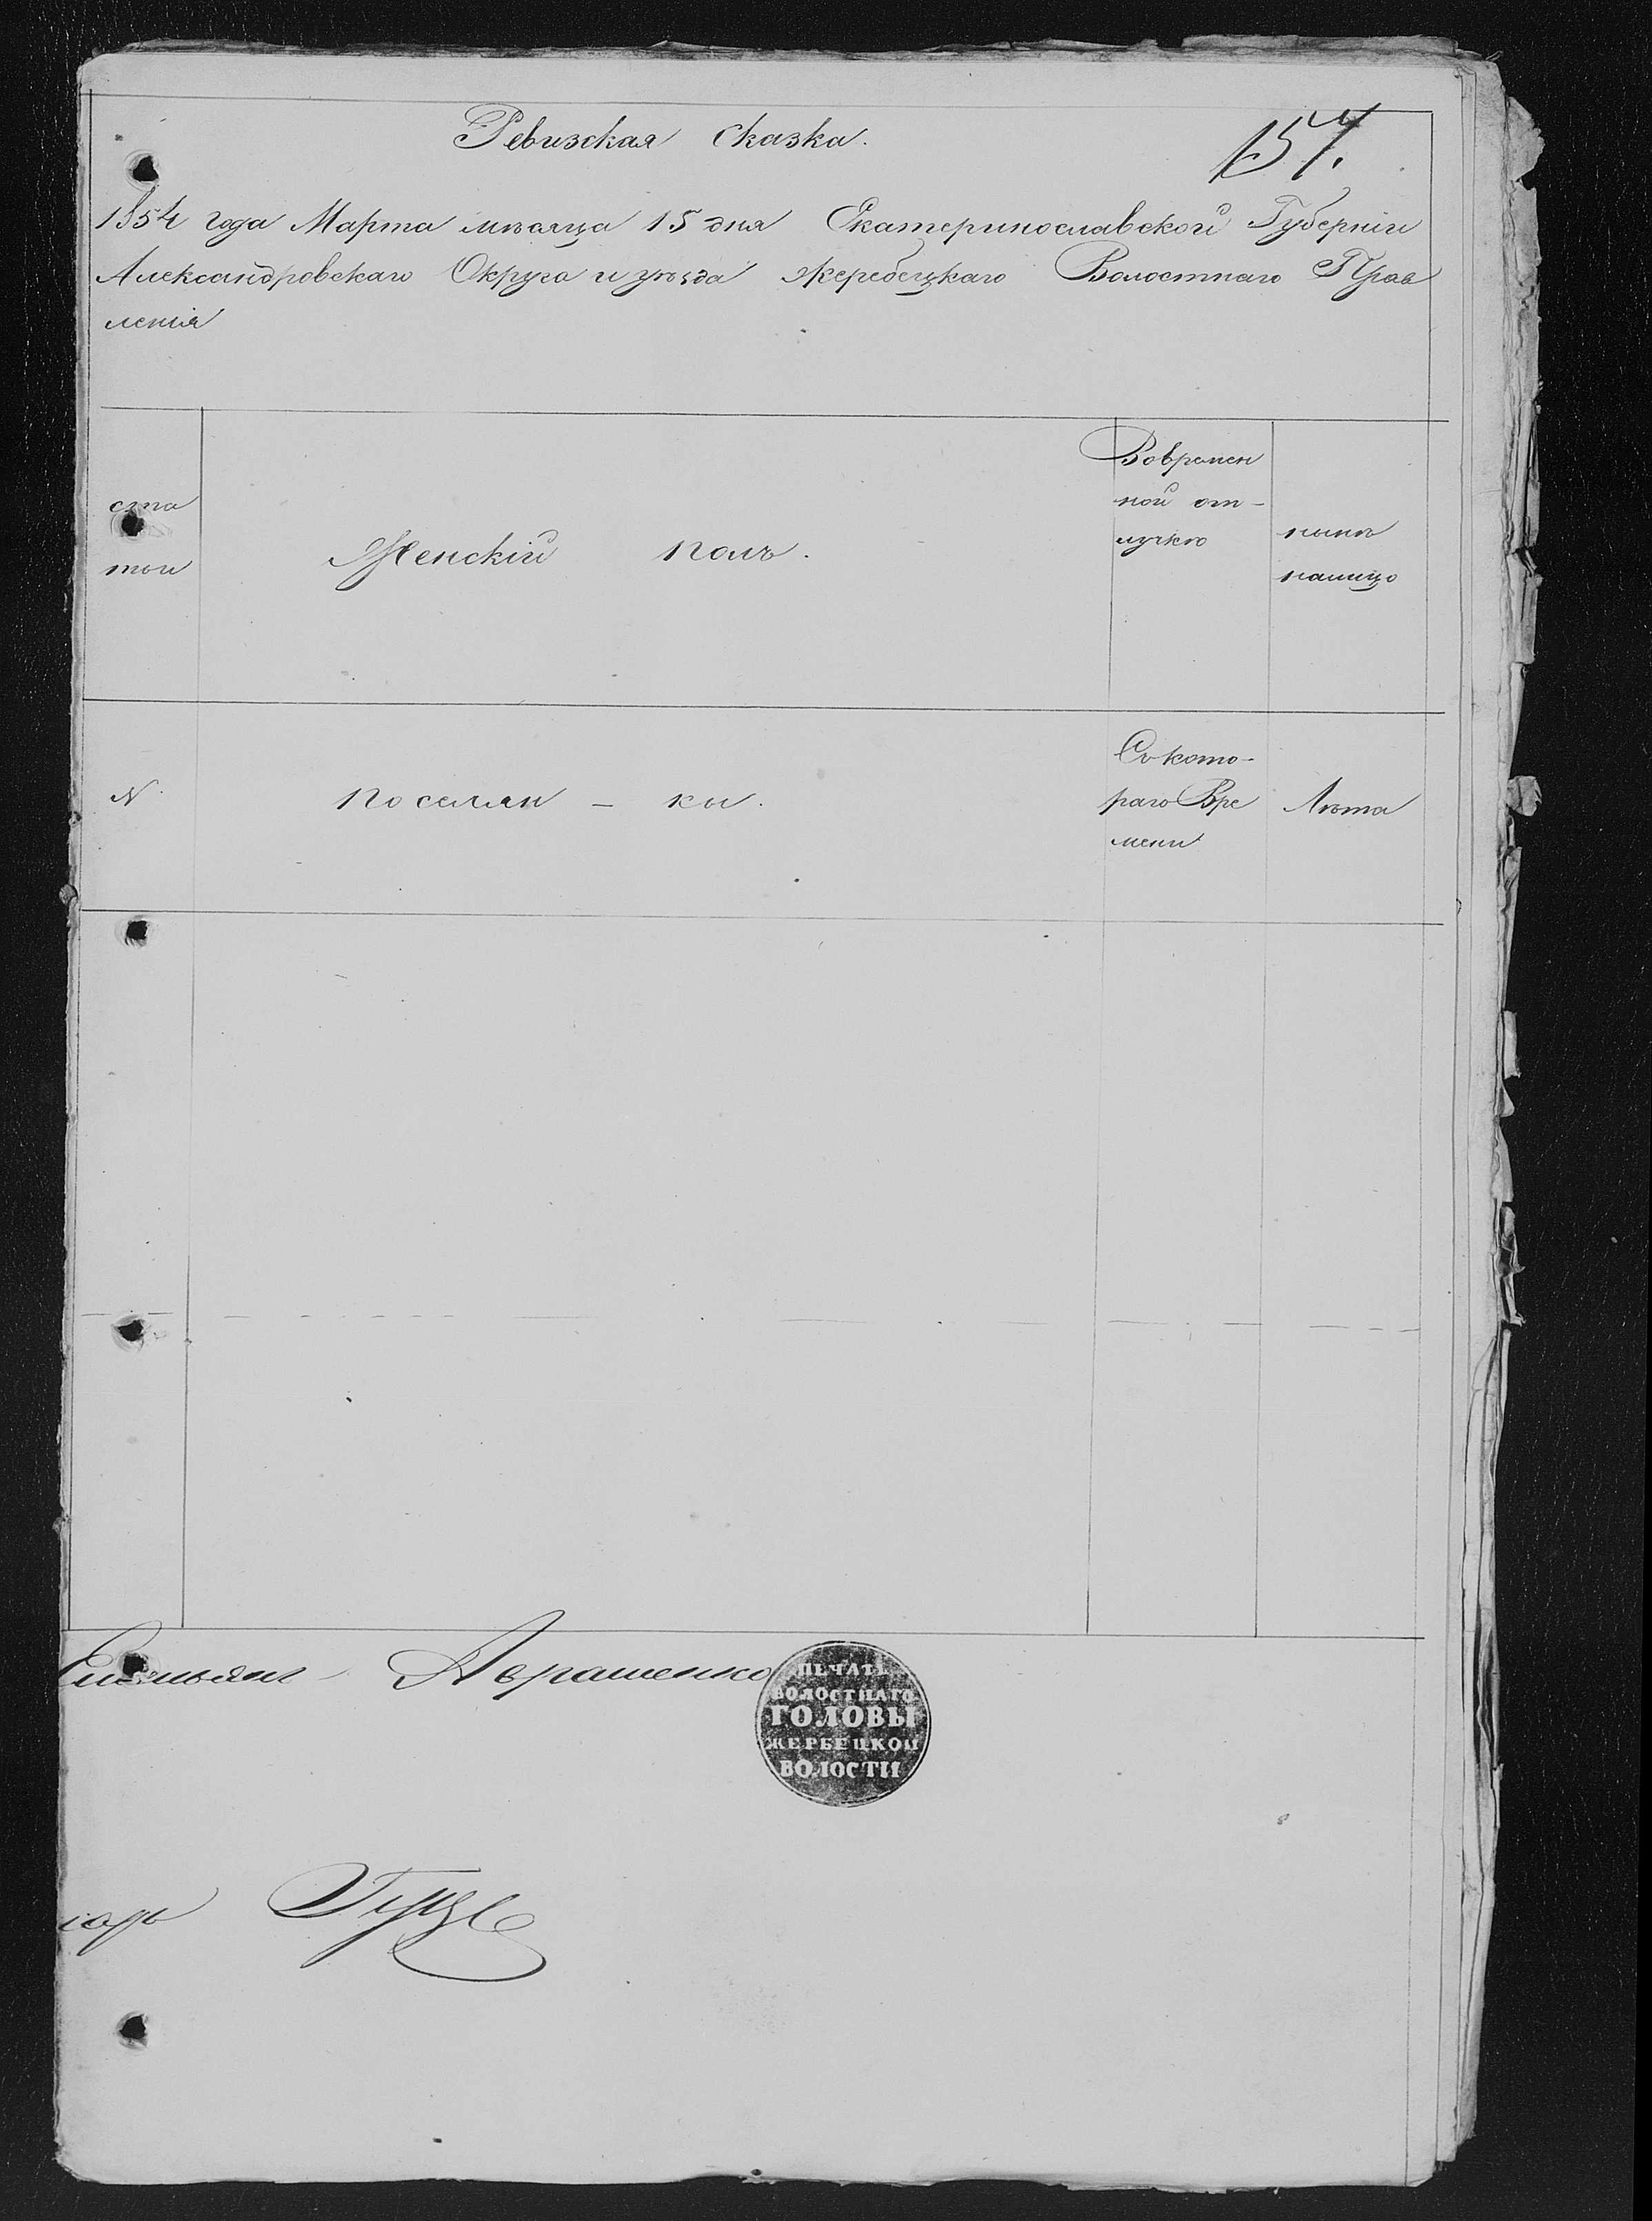 Ревизская Сказка.
157.
1854 года Марта мѣсяца 15 дня Екатеринославской Губерніи
Александровскаго Округа и уѣзда Жеребецкаго Волостнаго Прав
ленія
ста
тои
Женскій полъ.
Вовремен
ной от-
лучкѣ
нынѣ
налицо
N
поселян - ки.
Съкото-
раго Вре
мени
Лѣта
Емельянъ Аврашенко
ПЕЧАТЬ
ВОЛОСТНАГО
ГОЛОВЫ
ЖЕРБЕЦКОИ
ВОЛОСТИ
сарь